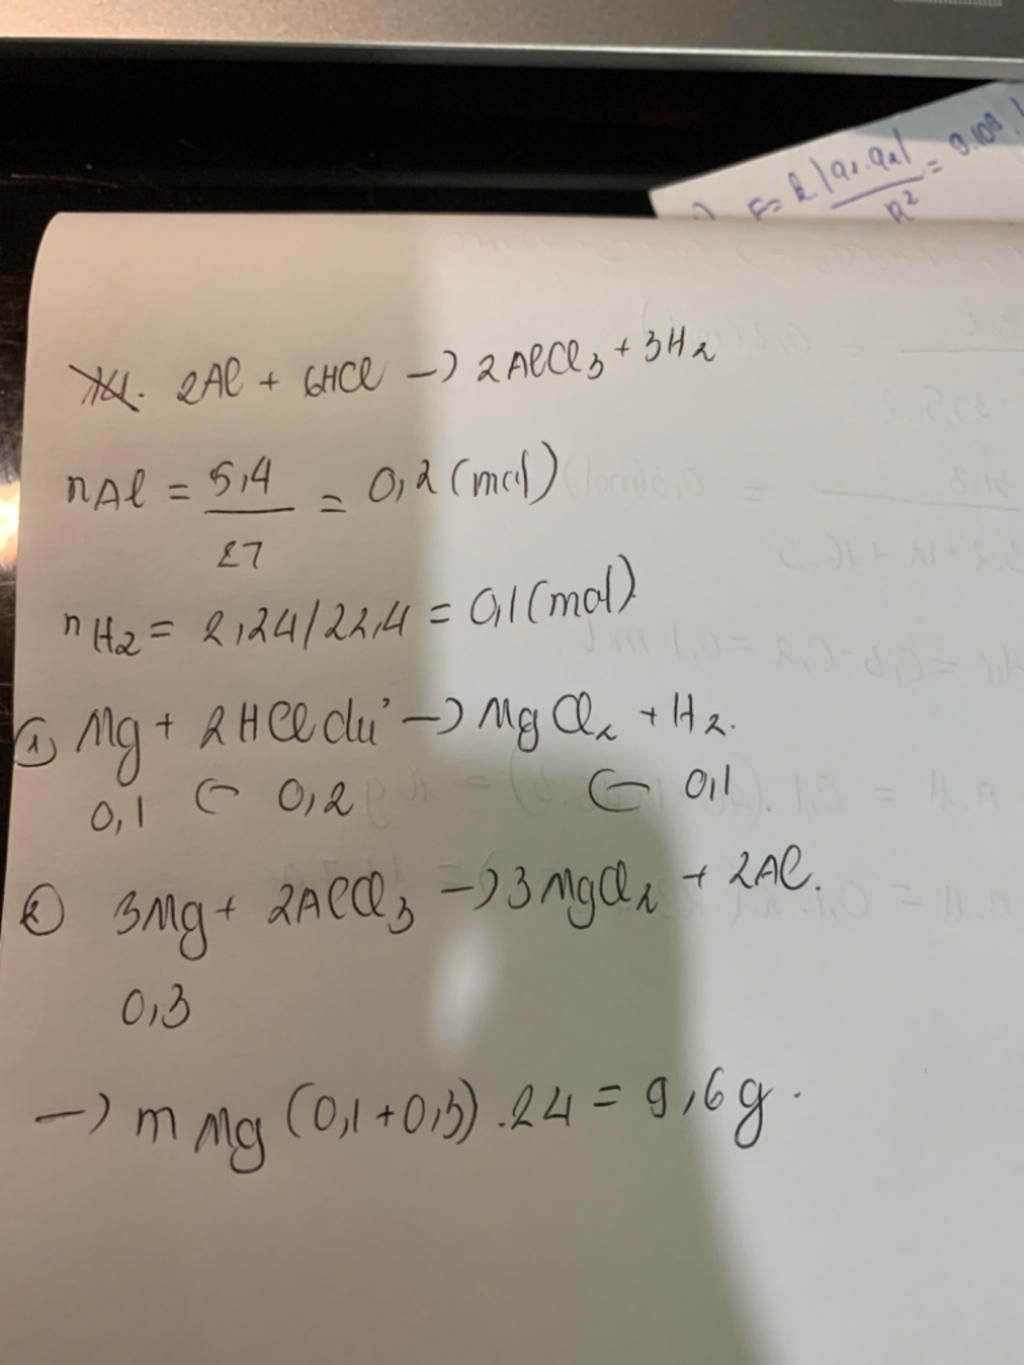 F = k |q1.q2| / R² = 9.10⁹
2Al + 6HCl → 2AlCl₃ + 3H₂
nAl = 5,4 / 27 = 0,2 (mol)
nH₂ = 2,24/22,4 = 0,1 (mol)
① Mg + 2HCl dư → MgCl₂ + H₂.
0,1 ← 0,2 ← 0,1
② 3Mg + 2AlCl₃ → 3MgCl₂ + 2Al.
0,3
→ m Mg (0,1 + 0,3) . 24 = 9,6g.